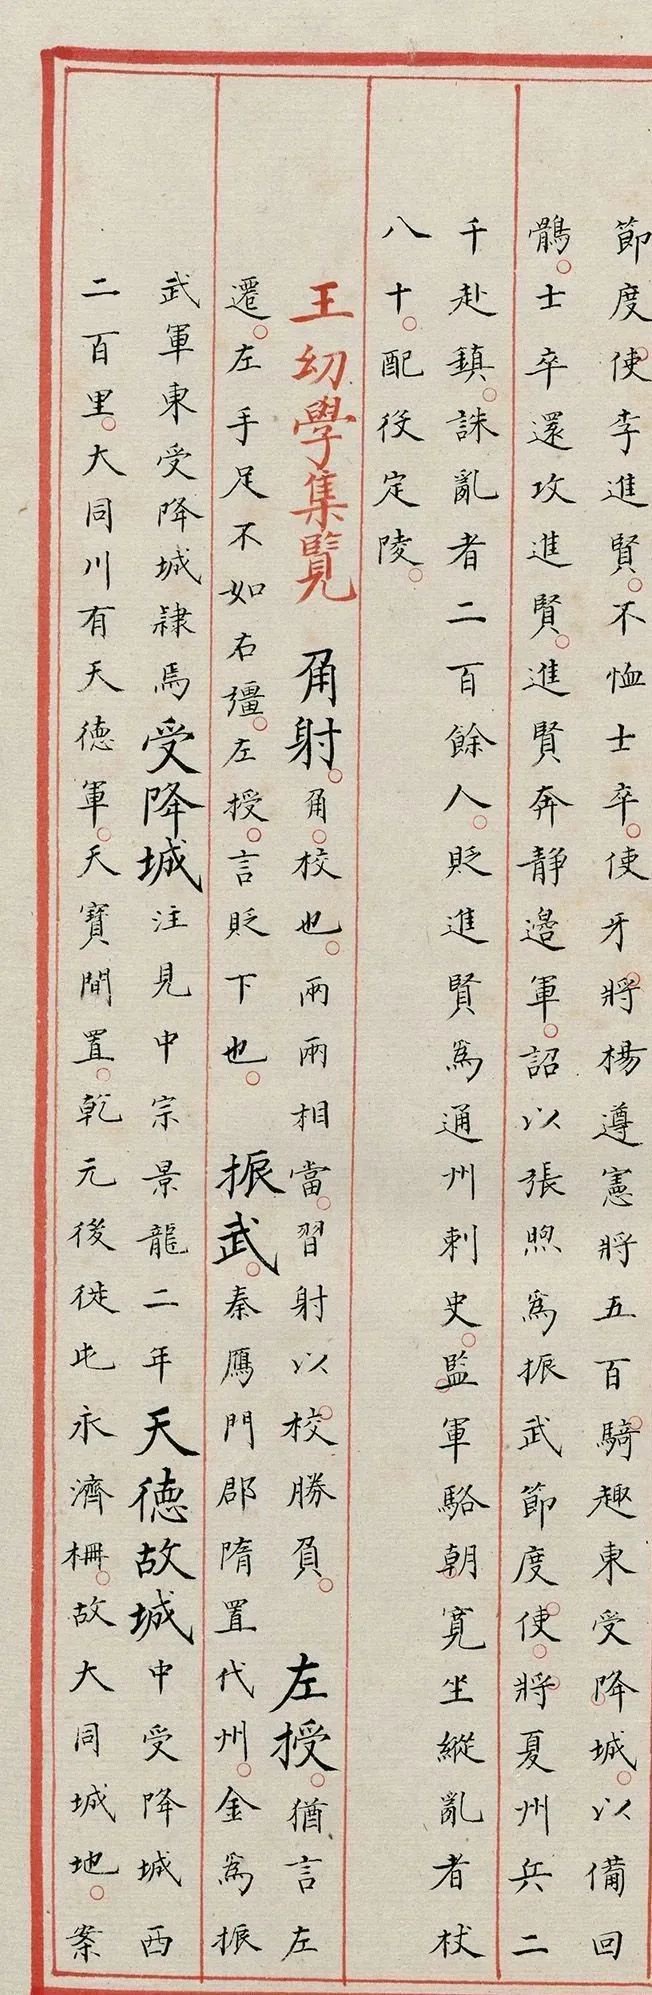 節度使李進賢。不恤士卒。使牙將楊遵憲將五百騎趣東受降城。以備回
鶻。士卒還攻進賢。進賢奔靜邊軍。詔以張煦爲振武節度使。將夏州兵二
千赴鎮。誅亂者二百餘人。貶進賢爲通州刺史。監軍駱朝寬坐縱亂者杖
八十。配役定陵。
王幼學集覽 角射。角。校也。兩兩相當。習射以校勝負。 左授。猶言左
遷。左手足不如右彊。左授。言貶下也。 振武。秦鴈門郡隋置代州。金爲振
武軍東受降城隸焉受降城注見中宗景龍二年天德故城中受降城西
二百里。大同川有天德軍。天寶間置。乾元後徙屯永濟柵。故大同城地。案